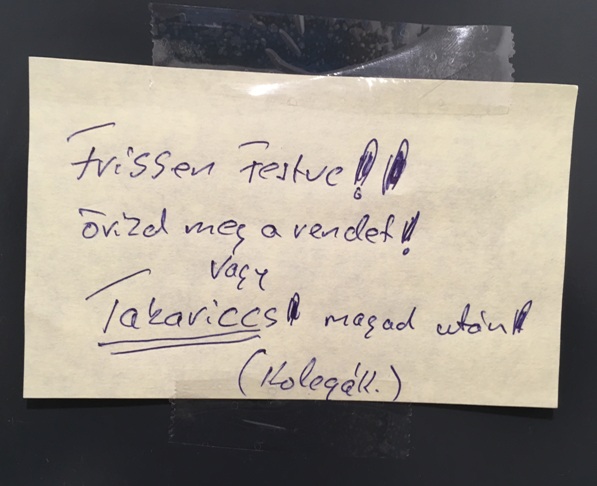 Frissen Festve!!
őrizd meg a rendet!
vagy
Takariccs! magad után!
(Kolegák.)